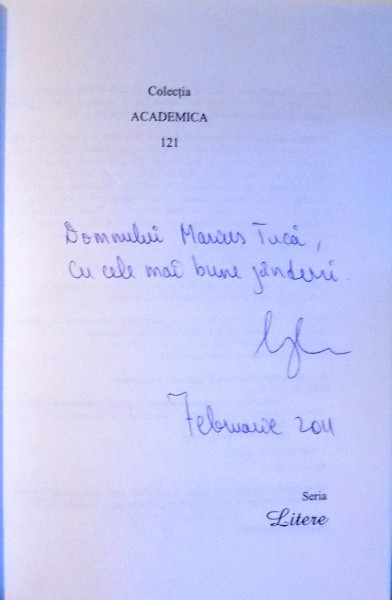 Colecția
ACADEMICA
121
Domnului Marius Tucă,
cu cele mai bune gânduri.
Februarie 2011
Seria
Litere